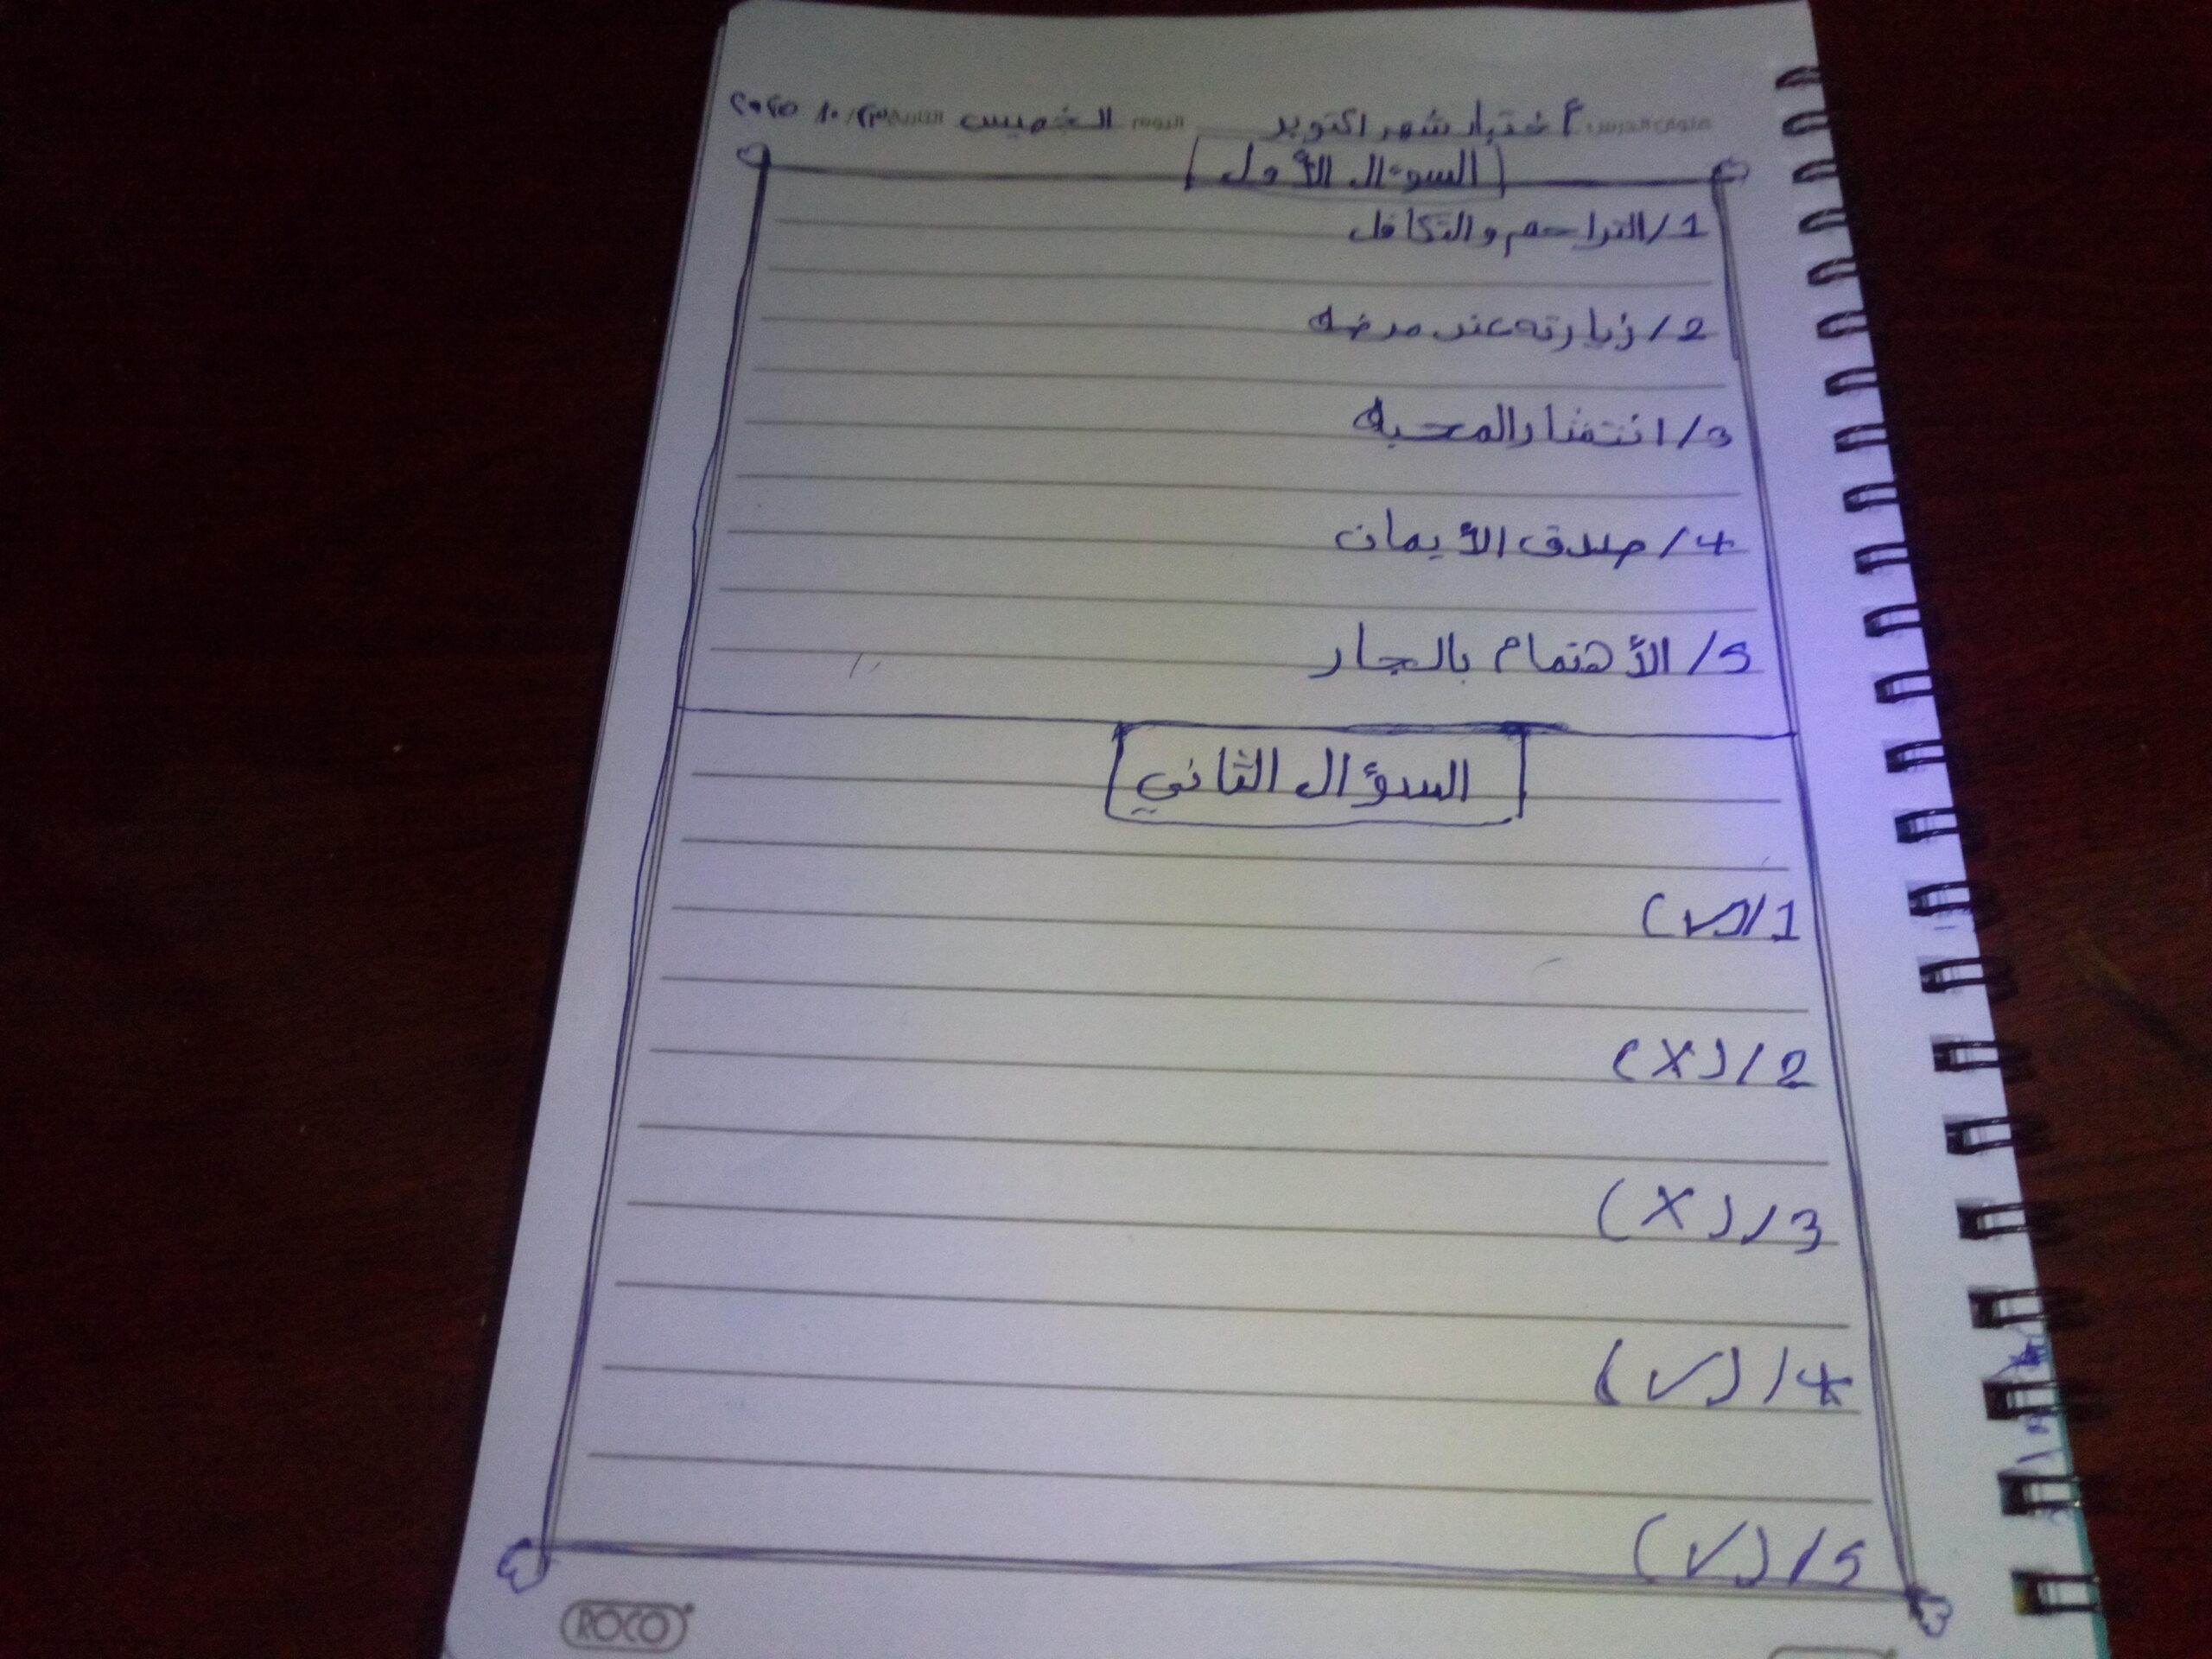 عنوان الدرس أختبار شهر اكتوبر اليوم الخميس التاريخ ١٠/٢٣ ٢٠٢٥
السؤال الأول
1/ التراحم والتكافل
2/ زيارته عند مرضه
3/ انتشار المحبه
4/ صدق الأيمان
5/ الأهتمام بالجار
السؤال الثاني
1/ (✓)
2/ (X)
3/ (X)
4/ (✓)
5/ (✓)
ROCO